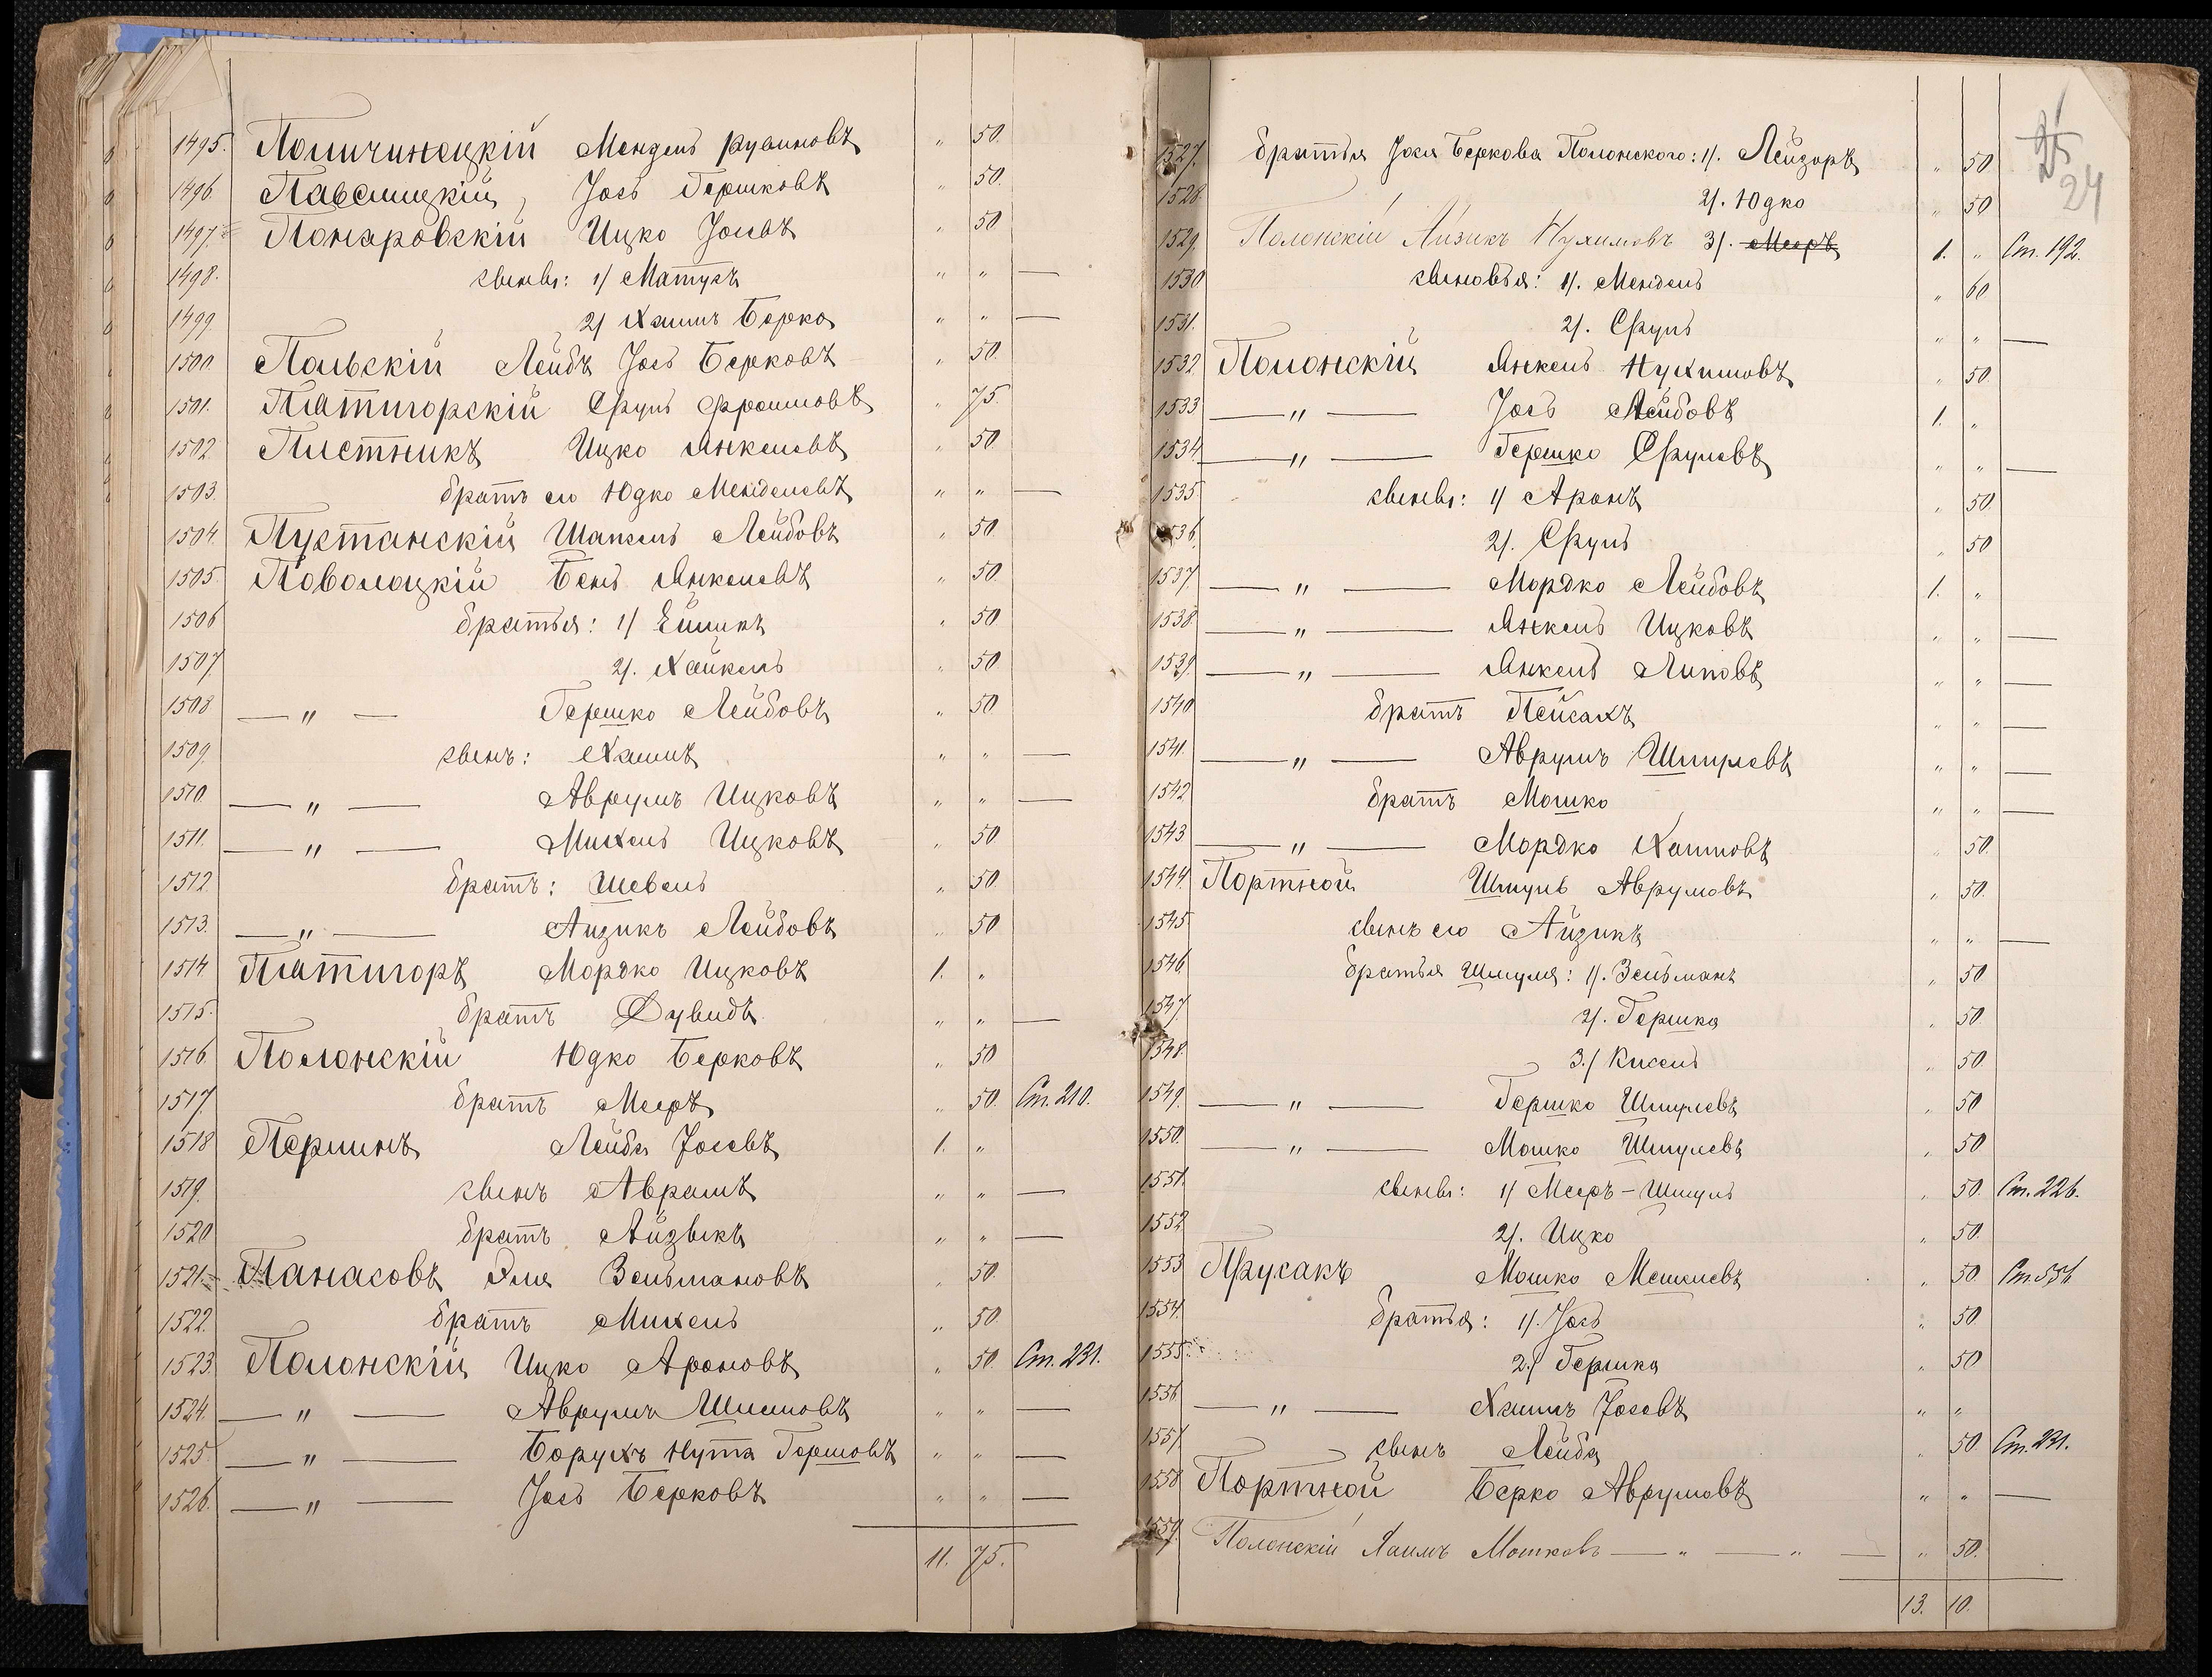 1495. Поличинецкій Мендель Рувиновъ „ 50.
1496. Павелицкій, Іось Гершковъ „ 50.
1497. Понаровскій Ицко Іосевъ „ 50
1498. сыновъ: 1/ Матусъ „ „ —
1499. 2/ Хаимъ Берко „ „ —
1500. Польскій Лейбъ Іось Берковъ „ 50.
1501. Пятигорскій Сруль Фроимовъ „ 75.
1502 Пистникъ Ицко Янкелевъ „ 50.
1503. братъ его Юдко Менделевъ „ „ —
1504. Пустанскій Шапсель Лейбовъ „ 50.
1505. Поволоцкій Бень Янкелевъ „ 50.
1506 братья: 1/ Ейликъ „ 50.
1507. 2/. Хайкель „ 50.
1508 — " — Гершко Лейбовъ „ 50
1509. сынъ: Хаимъ „ „ —
1510. — " — Аврумъ Ицковъ „ „ —
1511. — " — Михель Ицковъ „ 50
1512 братъ: Шевель „ 50.
1513. — " — Аизикъ Лейбовъ „ 50
1514 Пятигоръ Мордко Ицковъ 1. „
1515. братъ Дувидъ „ „ —
1516. Полонскій Юдко Берковъ „ 50
1517. братъ Мееръ „ 50. Ст. 210.
1518 Перминъ Лейба Іосевъ 1. „
1519. сынъ Аврамъ „ „ —
1520 братъ Айзыкъ „ „ —
1521. Панасовъ Эля Зельмановъ „ 50.
1522. братъ Михель „ 50.
1523. Полонскій Ицко Ароновъ „ 50. Ст. 231.
1524. — " — Аврумъ Шлиомовъ „ „ —
1525 — " — Борухъ Нута Гершовъ „ „ —
1526. — " — Іось Берковъ „ „ —
11. 75.
25
24
1527. братья Іося Беркова Полонского: 1/. Лейзоръ „ 50.
1528. 2/. Юдко „ 50
1529. Полонскій Айзикъ Нухимовъ 3/. Мееръ 1. „ Ст. 192.
1530 сыновья: 1/. Мендель „ 60
1531. 2/. Сруль „ „ —
1532 Полонскій Янкель Нухимовъ „ 50
1533 — " — Іось Лейбовъ 1. „
1534 — " — Гершко Срулевъ „ „ —
1535 сыновъ: 1/ Аронъ „ 50.
1536. 2/. Сруль „ 50
1537. — " — Мордко Лейбовъ 1. „
1538 — " — Янкель Ицковъ „ „ —
1539. — " — Янкель Липовъ „ „ —
1540 братъ Пейсахъ „ „ —
1541. — " — Аврумъ Шмулевъ „ „ —
1542 братъ Мошко „ „ —
1543 — " — Мордко Хаимовъ „ 50.
1544. Портной Шмуль Аврумовъ „ 50.
1545 сынъ его Айзикъ „ „ —
1546 братья Шмуля: 1/. Зельманъ „ 50
1547. 2/. Гершка „ 50
1548. 3./ Кисель „ 50.
1549. — " — Гершко Шмулевъ „ 50
1550. — " — Мошко Шмулевъ „ 50
1551. сыновъ: 1/ Мееръ-Шмуль „ 50. Ст. 226.
1552 2/. Ицко „ 50.
1553 Прусакъ Мошко Мошкевъ „ 50. Ст. 556
1554. братья: 1/. Іось „ 50
1555. 2./ Гершка „ 50
1556 — " — Хаимъ Іосевъ „ „
1557. сынъ Лейба „ 50. Ст. 231.
1558 Портной Берко Аврумовъ „ „ —
1559. Полонскій Хаимъ Мошковъ — „ — „ — „ 50.
13. 10.